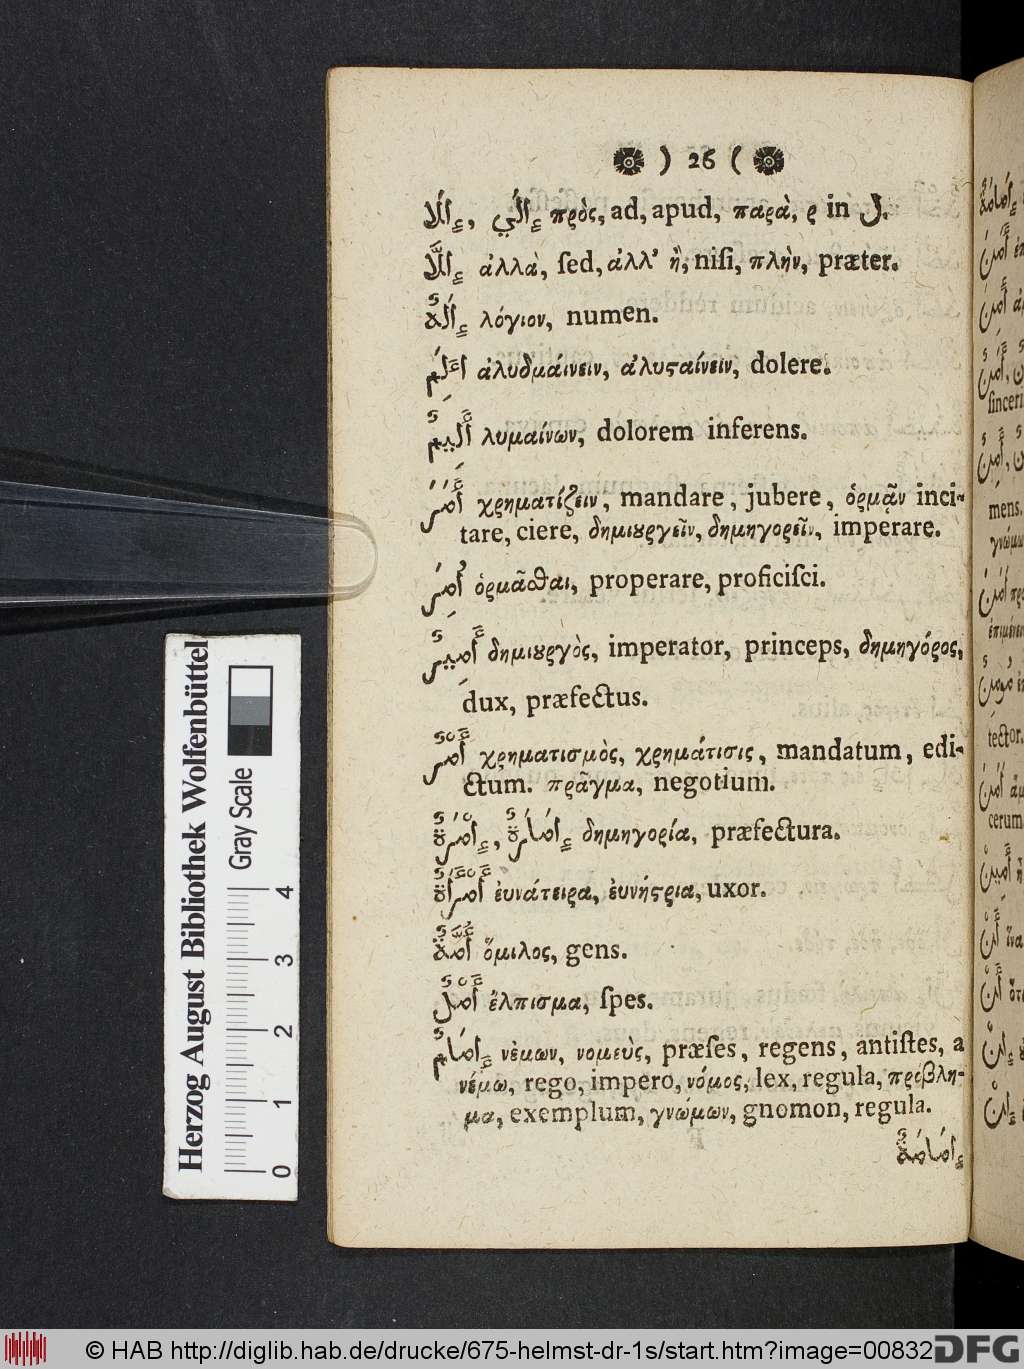 ) 26 (
إِلَا, إِلَي πρὸς, ad, apud, παρὰ, ρ in ل.
إِلَّا ἀλλὰ, ſed, ἀλλ' ἢ, niſi, πλὴν, præter.
إِلَٰهٌ λόγιον, numen.
ἀλυδμάινειν, ἀλυςαίνειν, dolere.
أَلِيمٌ λυμαίνων, dolorem inferens.
أَمَرَ χρηματίζειν, mandare, jubere, ὁρμᾷν inci-
tare, ciere, δημιȣργεῖν, δημηγορεῖν, imperare.
ὁρμᾶϑαι, properare, proficiſci.
أَمِيرٌ δημιȣργὸς, imperator, princeps, δημηγόρος,
dux, præfectus.
أَمْرٌ χρηματισμὸς, χρημάτισις, mandatum, edi-
ctum. πρᾶγμα, negotium.
إِمْرَةٌ, إِمَارَةٌ δημηγορία, præfectura.
ἐυνάτειρα, ἐυνήςρια, uxor.
أُمَّةٌ ὅμιλος, gens.
أَمَلٌ ἔλπισμα, ſpes.
إِمَامٌ νέμων, νομεὺς, præſes, regens, antiſtes, a
νέμω, rego, impero, νόμος, lex, regula, πρόβλη-
μα, exemplum, γνώμων, gnomon, regula.
إِمَامَةٌ
Herzog August Bibliothek Wolfenbüttel
Gray Scale
0 1 2 3 4
© HAB http://diglib.hab.de/drucke/675-helmst-dr-1s/start.htm?image=00832
DFG